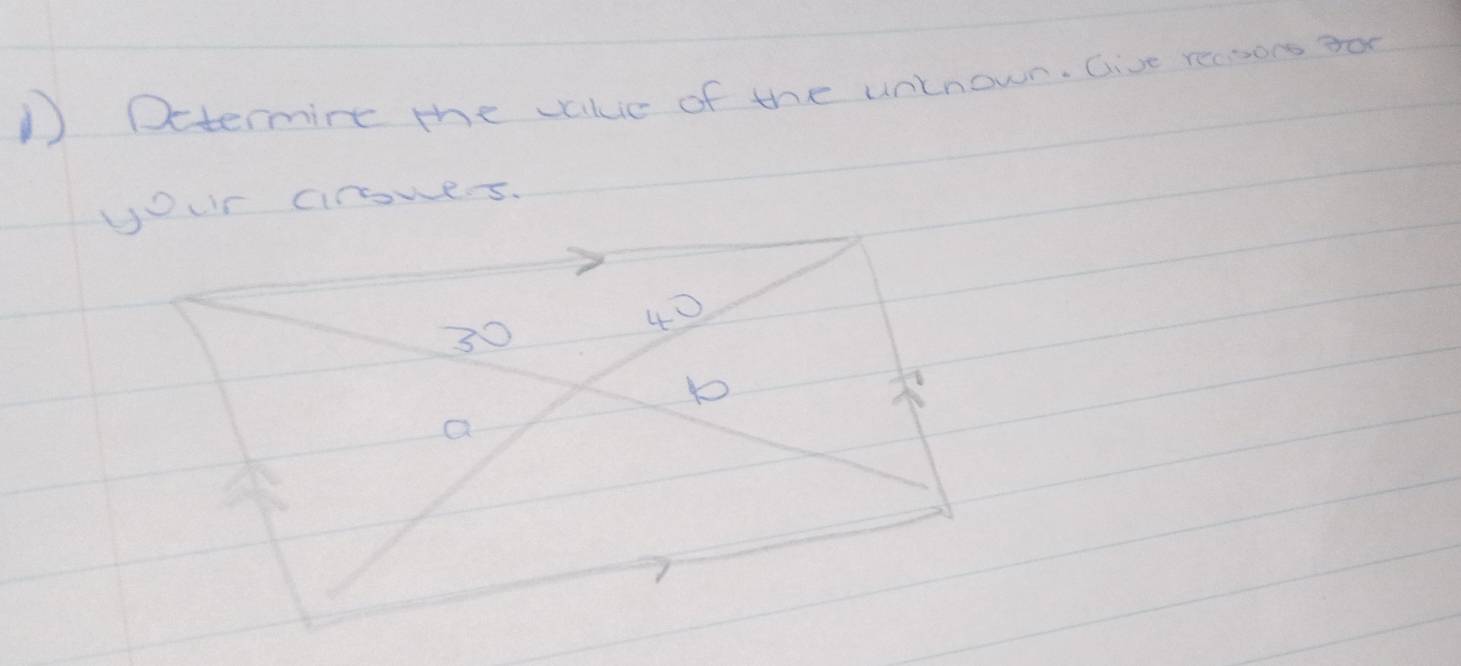 1) Determine the value of the unknown. Give reasons for
your answers.
30
40
a
b